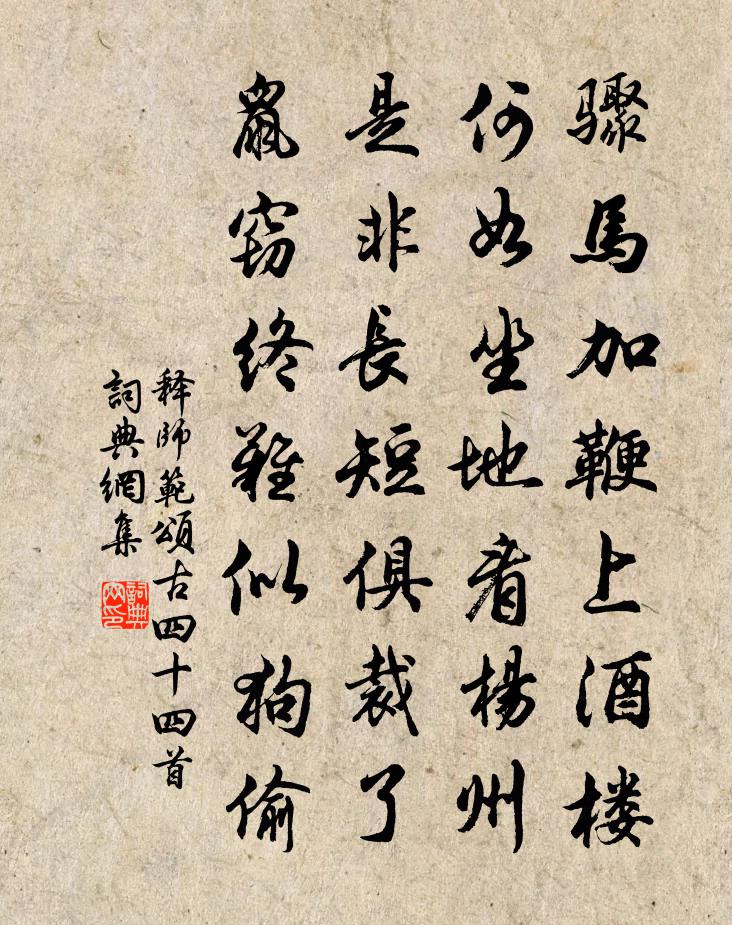 骤馬加鞭上酒楼
何如坐地看楊州
是非長短俱裁了
鼠窃終难似狗偷
释師範頌古四十四首
詞典網集
詞典网印